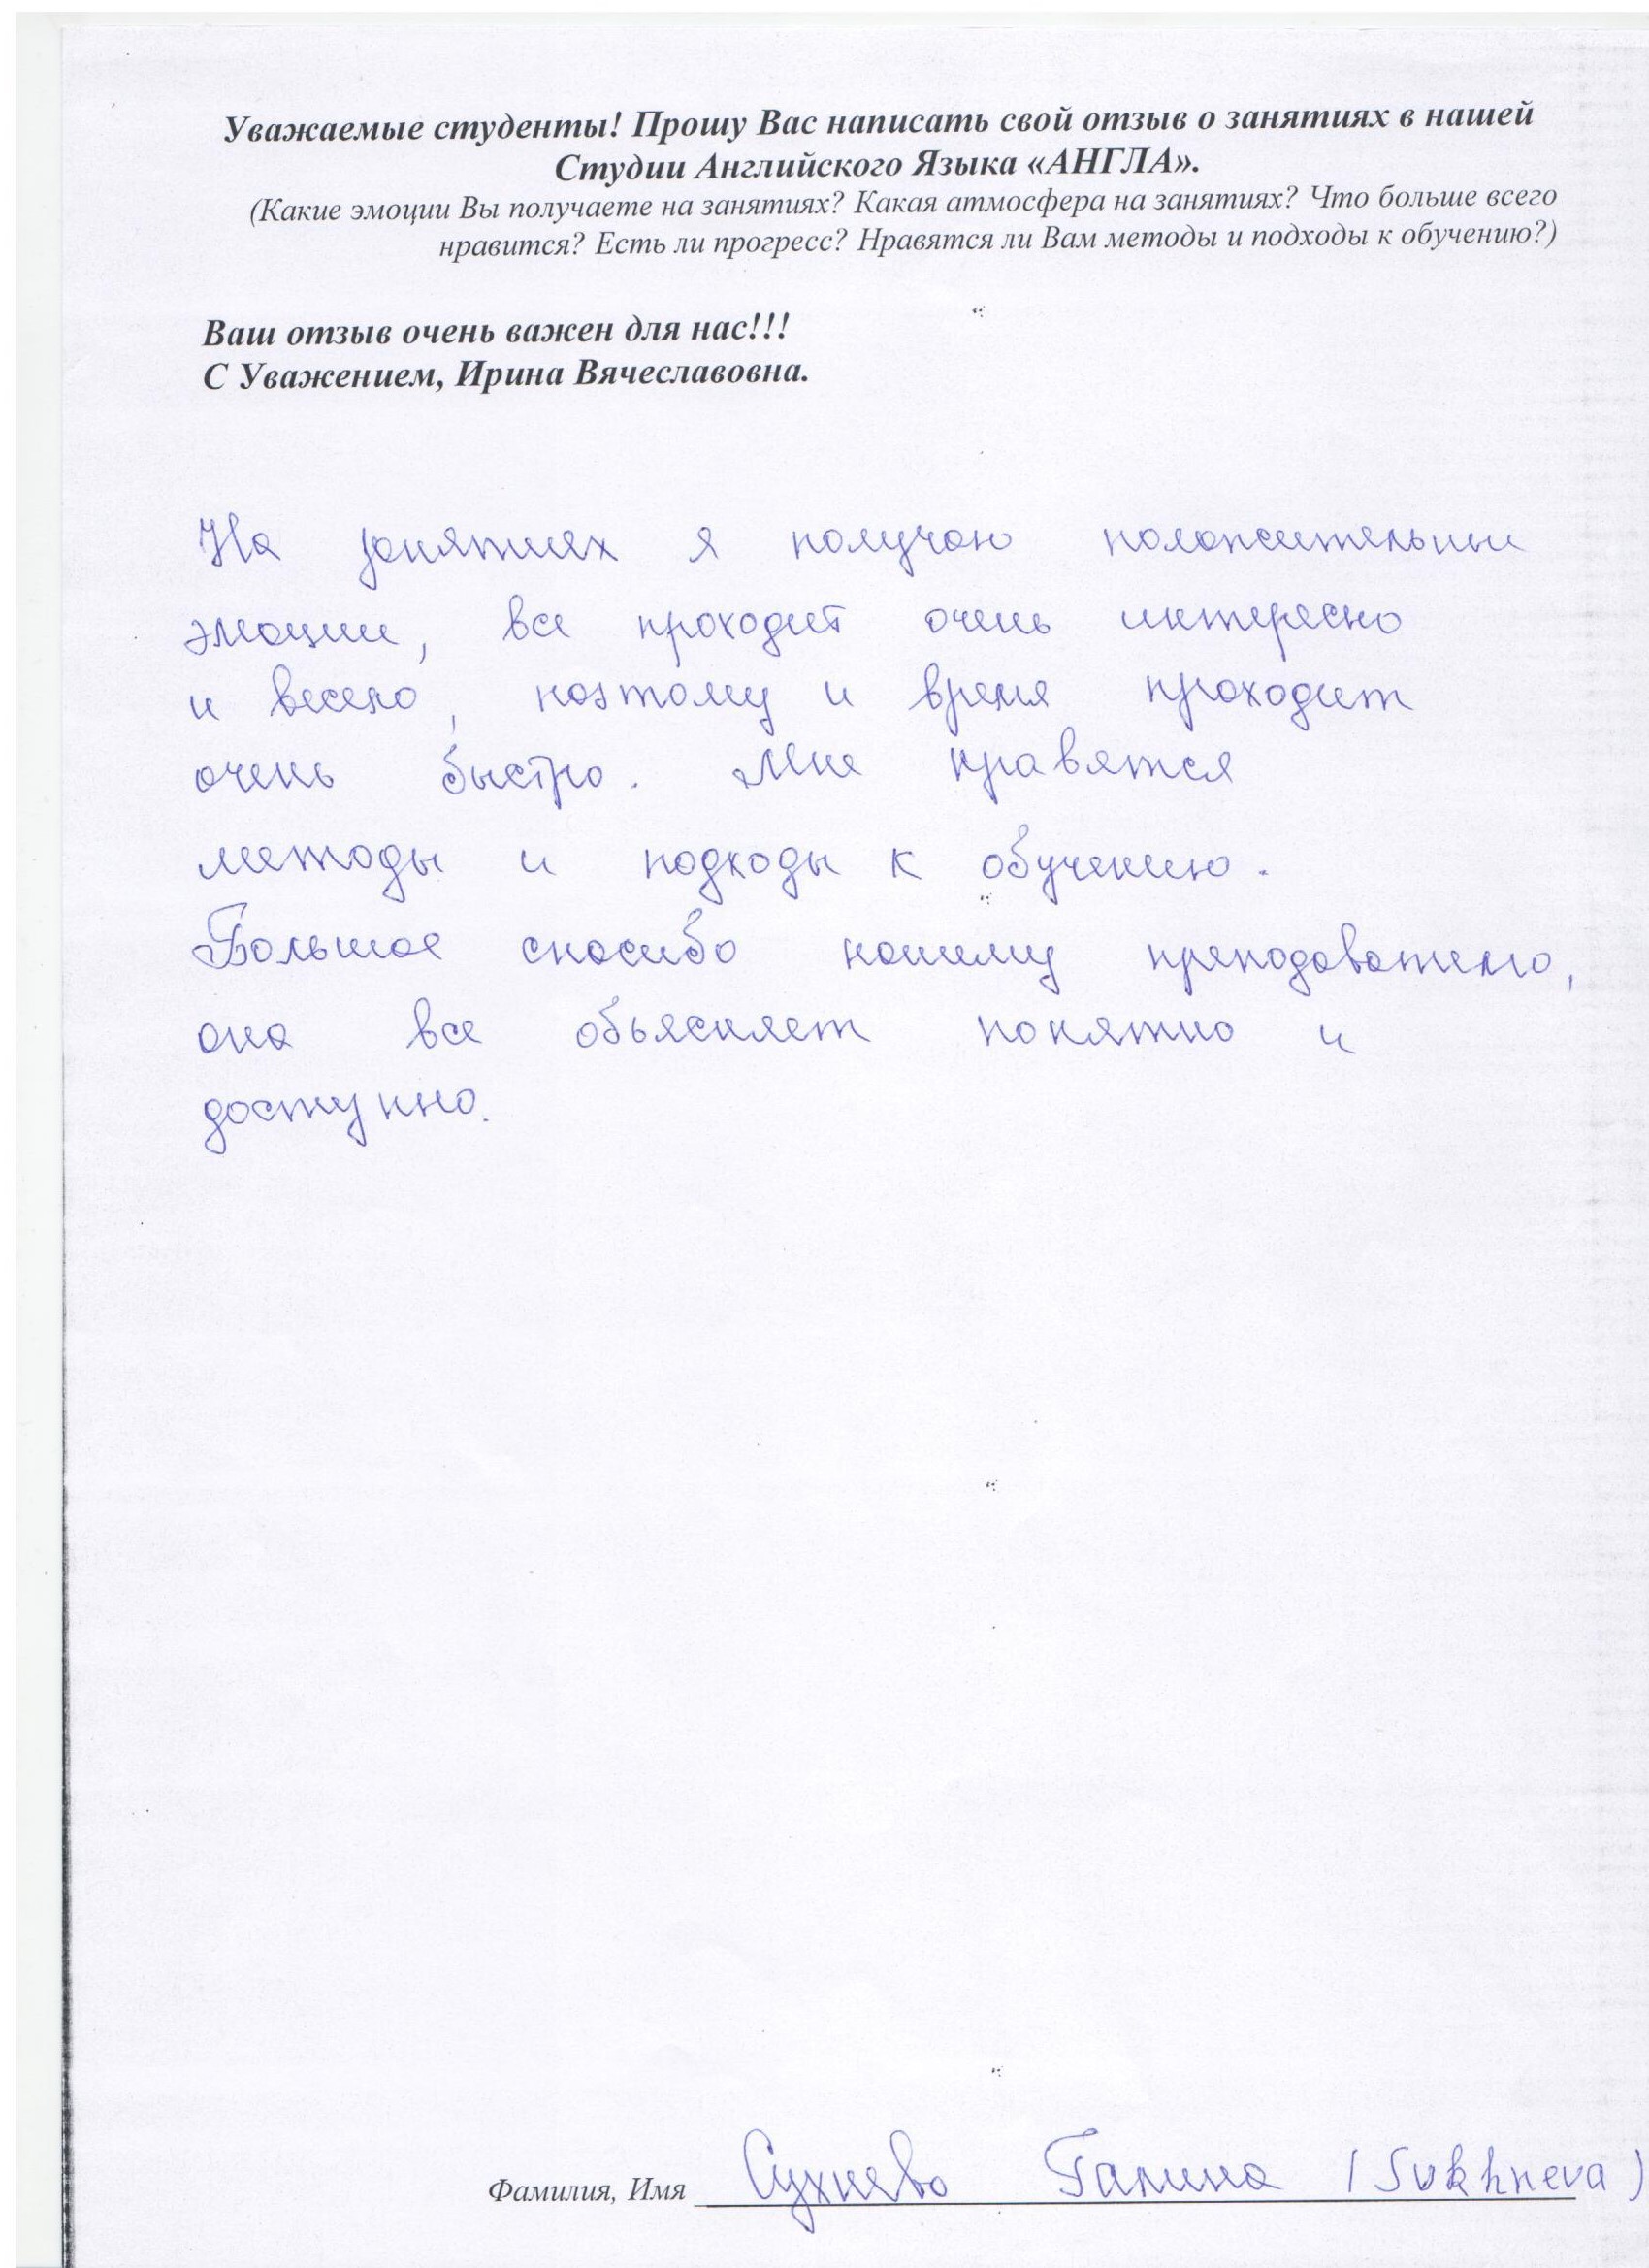 Уважаемые студенты! Прошу Вас написать свой отзыв о занятиях в нашей
Студии Английского Языка «АНГЛА».
(Какие эмоции Вы получаете на занятиях? Какая атмосфера на занятиях? Что больше всего
нравится? Есть ли прогресс? Нравятся ли Вам методы и подходы к обучению?)
Ваш отзыв очень важен для нас!!!
С Уважением, Ирина Вячеславовна.
На занятиях я получаю положительные
эмоции, все проходит очень интересно
и весело, поэтому и время проходит
очень быстро. Мне нравятся
методы и подходы к обучению.
Большое спасибо нашему преподавателю,
она все объясняет понятно и
доступно.
Фамилия, Имя Сухнева Галина (Sukhneva)